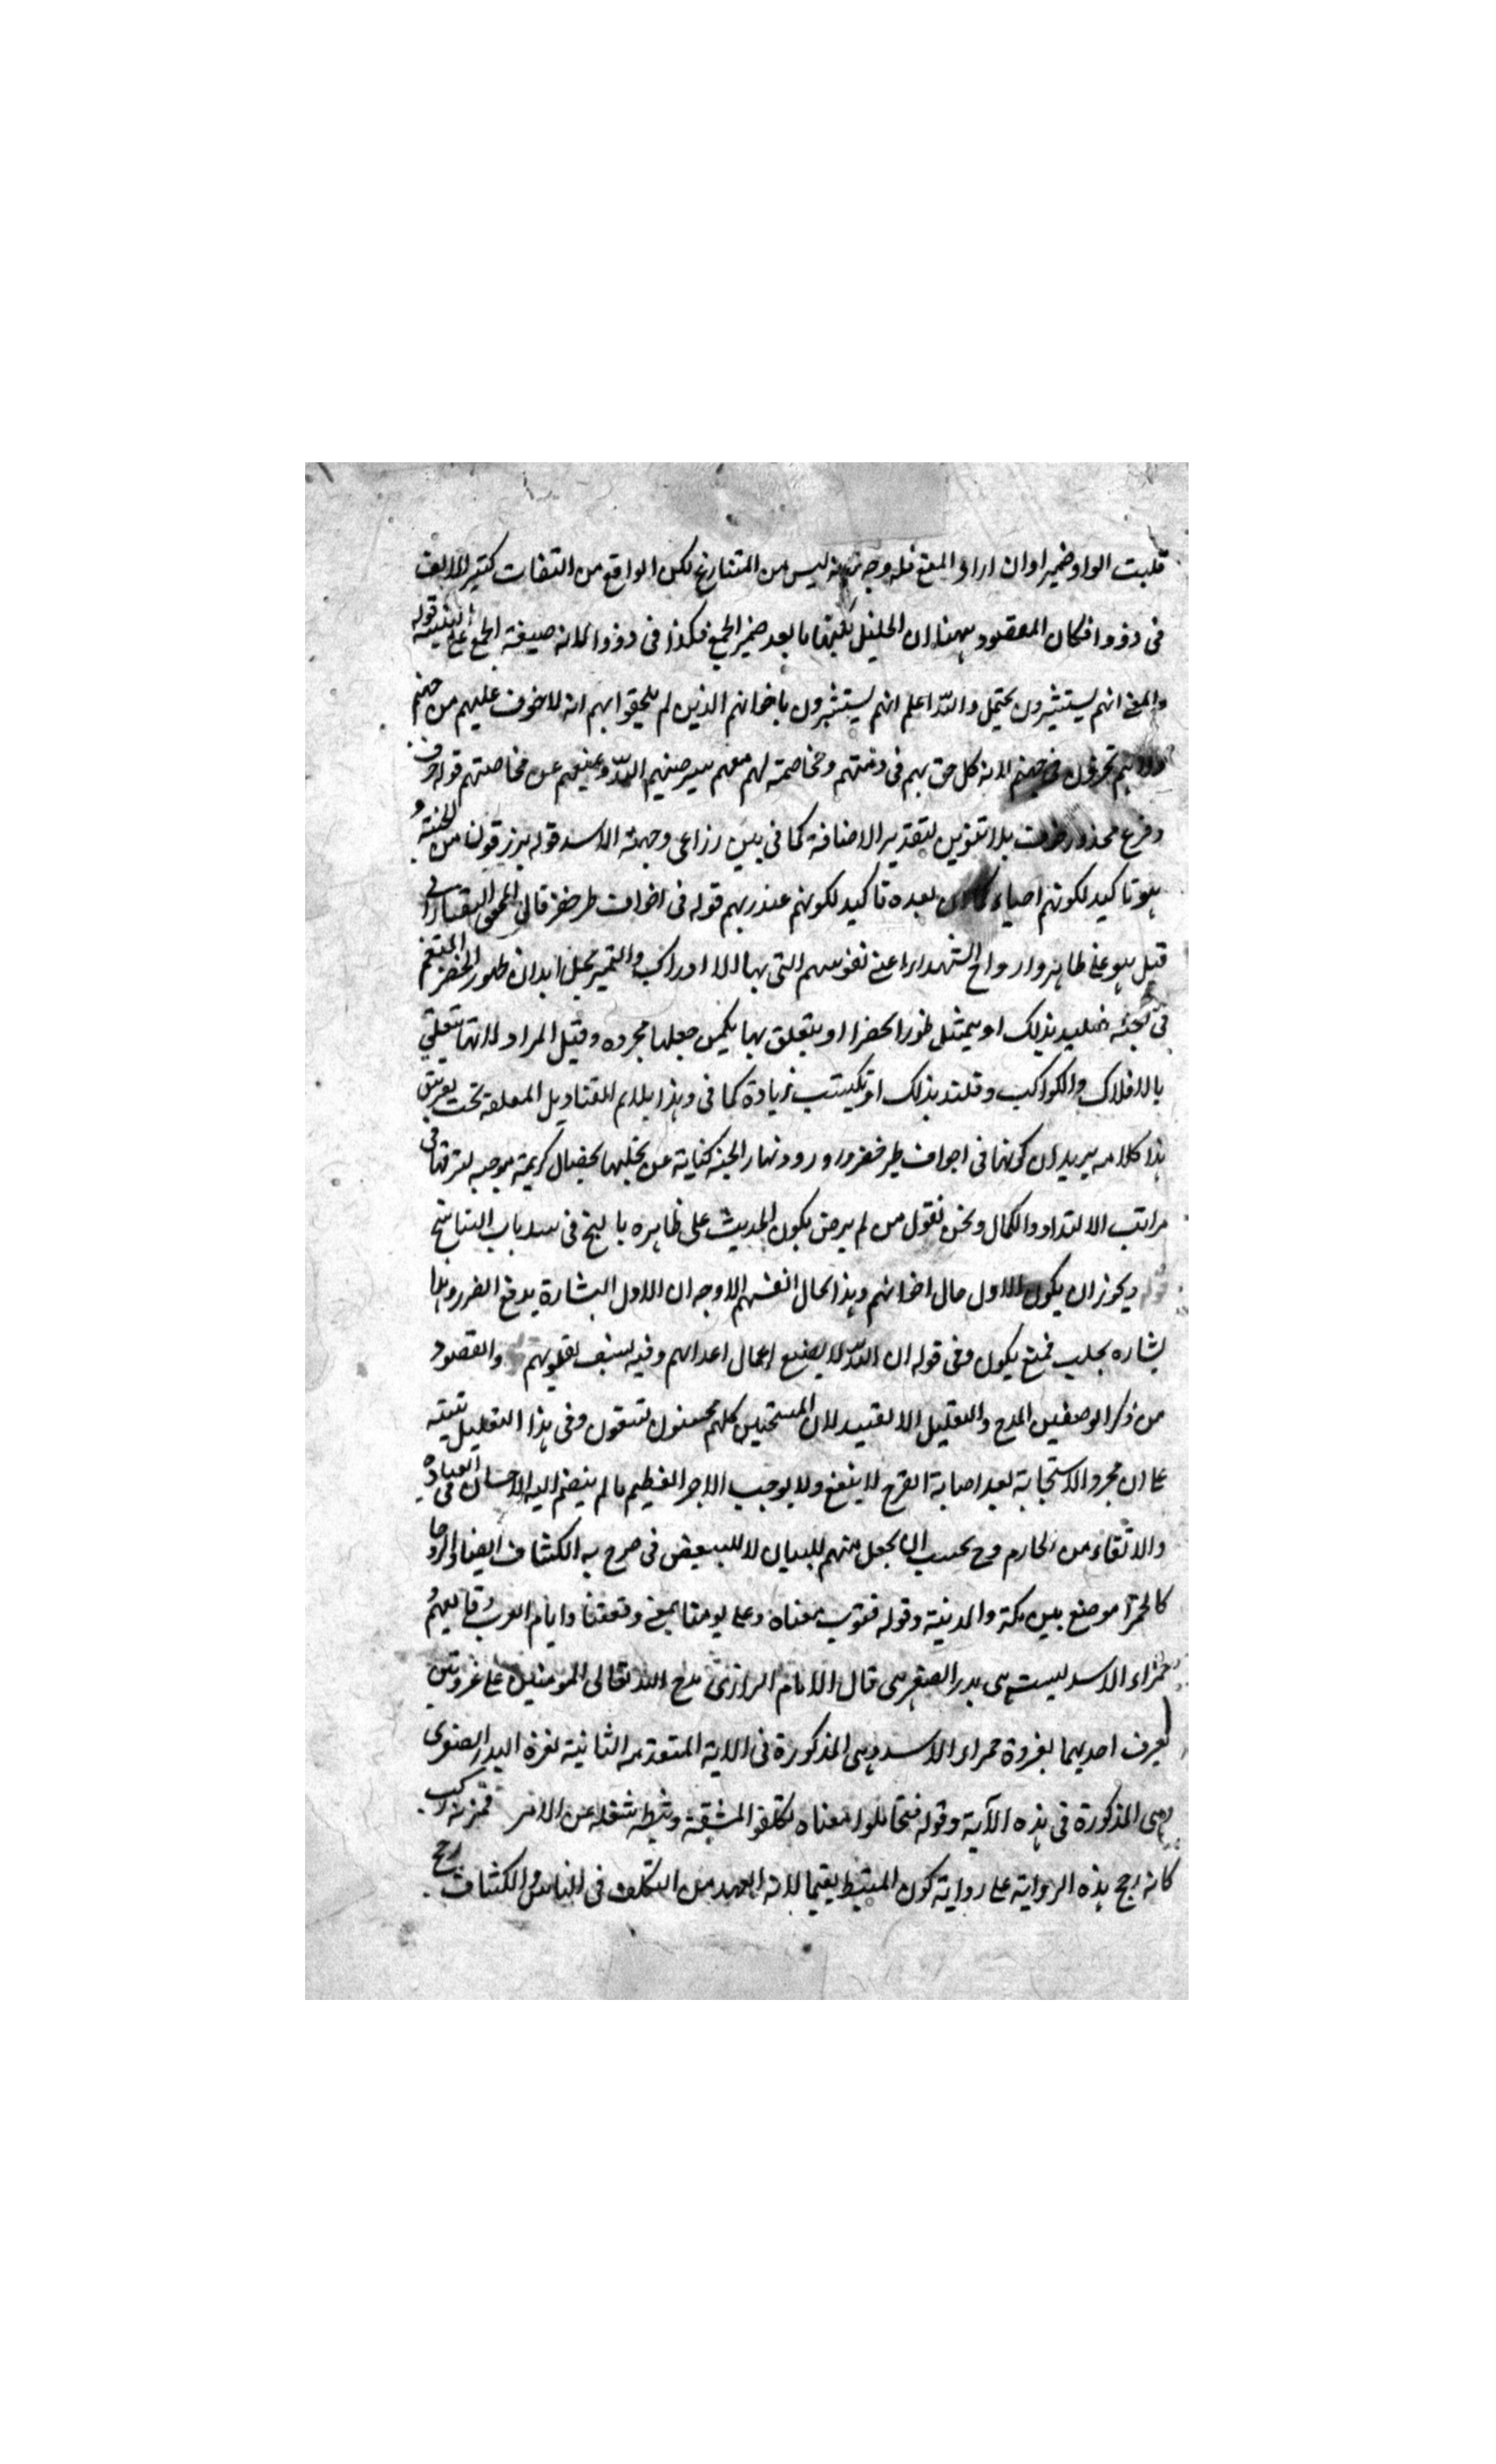 قلبت الواو ضميرا وان اراد المعنى فله وجه لانه ليس من المتنازع لكن الواقع من الثقات كثير لا الف
فى ذوو افكان المقصود ههنا ان الخليل بعد ضمير الجمع فكذا فى ذووا لانه صيغة الجمع على التثنية قوله
والمعنى انهم يستبشرون يحتمل والله اعلم انهم يستبشرون باخوانهم الذين لم يلحقوا بهم انه لا خوف عليهم من جهنم
ولا هم يحزنون لانه كل حق بهم فى ذمتهم ومخاصمة لهم معهم سيرضيهم الله ويمنعهم عن مخاصمتهم قوله
وفزع محذور بلا تنوين لتقدير الاضافة كما فى بين ذراعى وجبهة الاسد قوله يرزقون من الجنة
هو تاكيد لكونهم احياء كما ان بعده تاكيد لكونهم عند ربهم قوله فى اجواف طير خضر قال المحقق التفتازانى
قيل هو على ظاهره وارواح الشهداء اعنى نفوسهم التى بها الادراك والتمييز يجعل ابدان طيور الخضر المتنعم
فى الجنة فيلتذ بذلك او يتمثل طيورا خضرا او يتعلق بها جعلها مجرده وقيل المراد انها تتعلق
بالافلاك والكواكب وتلتذ بذلك او تكتسب زيادة كما فى وهذا يلايم القناديل المعلقة تحت
هذا كلامه يريد ان كونها فى اجواف طير خضر وورود انهار الجنة كناية عن تحليها بخصال كريمة موجبه لترقيها فى
مراتب الالتذاذ والكمال ونحن نقول من لم يرض بكون الحديث على ظاهره بالغ فى سد باب التناسخ
ويجوز ان يكون الاول حال اخوانهم وهذا بحال انفسهم الاوجه ان الاول البشارة بدفع الضرر وهذا
بشاره بجلب وفى قوله ان الله لا يضيع اعمال اعدائهم وفيه لقلوبهم والمقصود
من ذكر الوصفين المدح والتعليل لا التقييد لان المستجيبين كلهم محسنون متقون وفى هذا التعليل تنبيه
على ان مجرد الاستجابة بعد اصابة القرح لا ينفع ولا يوجب الاجر العظيم ما لم ينضم اليه الاحسان فى العباده
والاتقاء من المحارم وح يجعل منهم للبيان لا للتبعيض صرح به الكشاف ايضا الروحا
كالحمرا موضع بين مكة والمدينة وقوله فثوب معناه وعلى يومنا بمعنى وقعتنا وايام العرب وقايعهم
حمراء الاسد ليست هى بدر الصغرى قال الامام الرازى مدح الله تعالى المومنين على غزوتين
يعرف احديهما بغزوة حمراء الاسد وهى المذكورة فى الاية المتقدمه الثانية بغزة البدر الصغرى
وهى المذكورة فى هذه الآية وقوله فتحاملوا معناه تكلفوا المشقة وثبطه شغله عن الامر فمر به ركب
كانه رجح هذه الرواية على رواية كون المثبط نعيما لانه ابعد من التكلف فى الناس والكشاف رجح